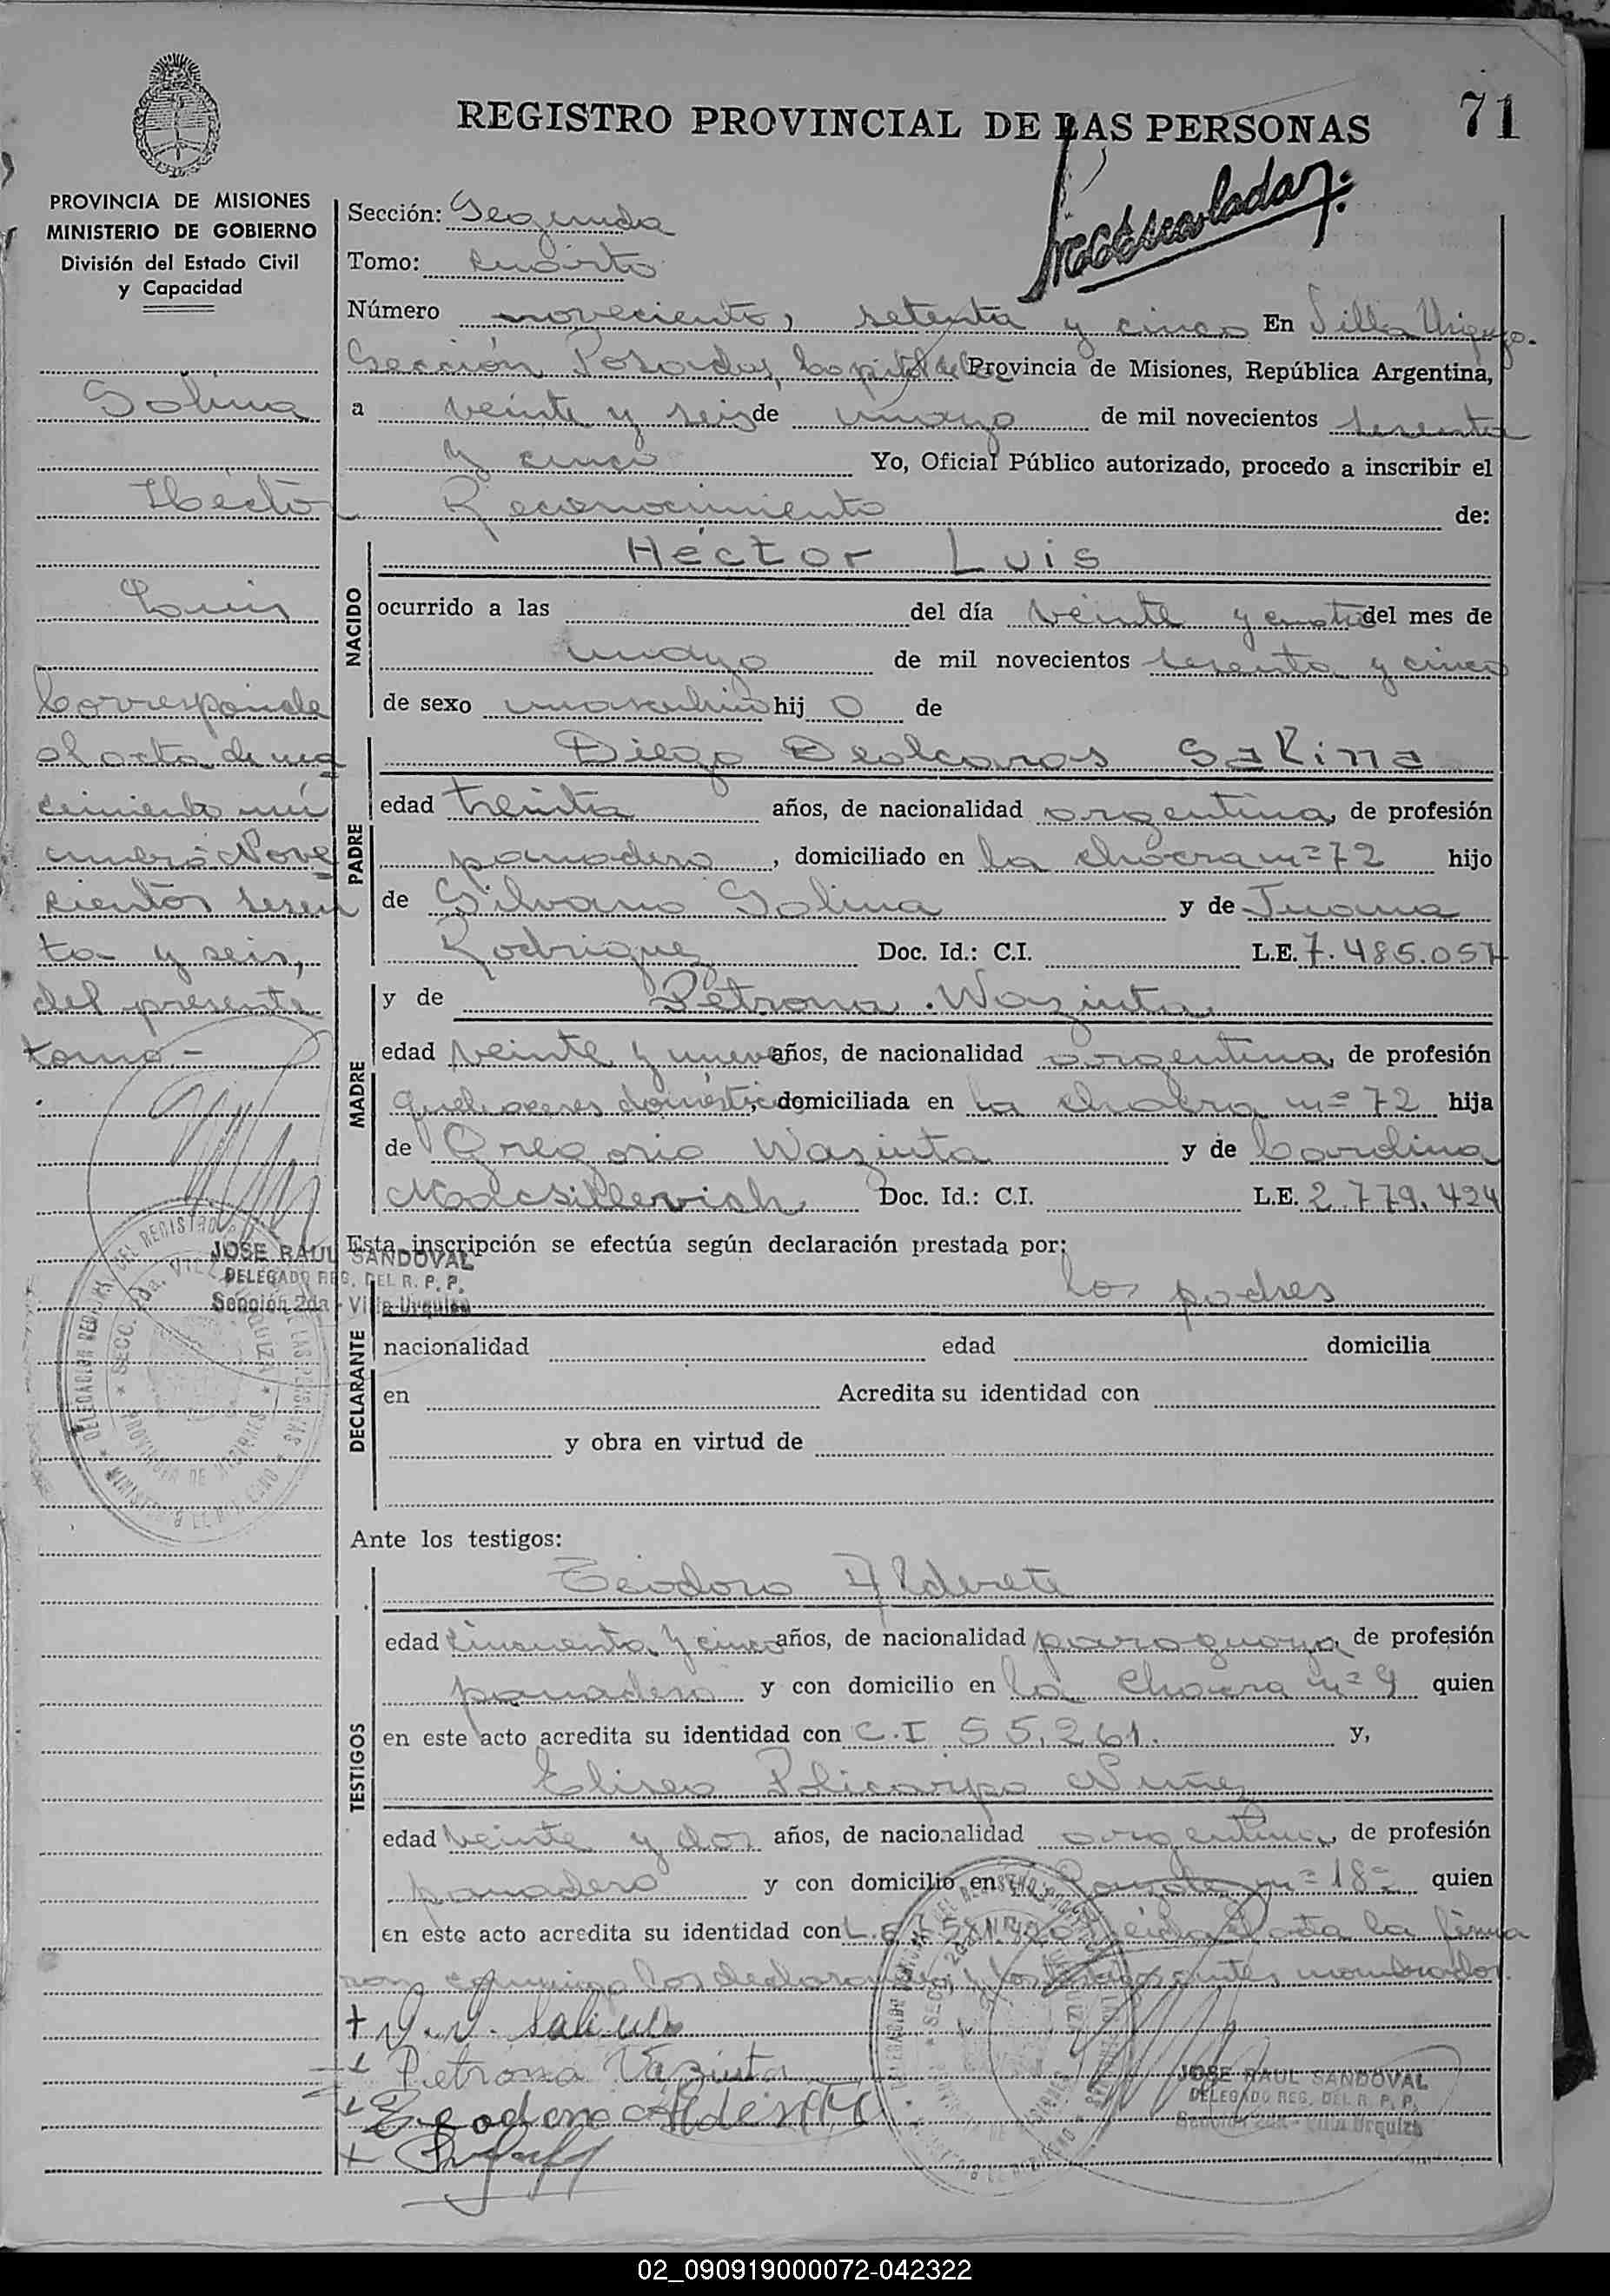 REGISTRO PROVINCIAL DE LAS PERSONAS
71
PROVINCIA DE MISIONES
MINISTERIO DE GOBIERNO
División del Estado Civil
y Capacidad
Salina
Héctor
Luis
Corresponde
al acta de naci
cimiento nú
mero Nove
cientos sesen
ta y seis,
del presente
tomo.-
JOSE RAUL SANDOVAL
DELEGADO REG. DEL R. P. P.
Sección 2da - Villa Urquiza
Sección: Segunda
Tomo: cuarto
Número noveciento, setenta y cinco En Villa Urquiza.
Sección Posadas, Capital de la Provincia de Misiones, República Argentina,
a veinte y seis de mayo de mil novecientos sesenta
y cinco Yo, Oficial Público autorizado, procedo a inscribir el
Reconocimiento de:
NACIDO
Héctor Luis
ocurrido a las del día veinte y cuatro del mes de
mayo de mil novecientos sesenta y cinco
de sexo masculino hij o de
PADRE
Diego Salina
edad treinta años, de nacionalidad argentina, de profesión
panadero, domiciliado en la chacra nº 72 hijo
de Silvano Salina y de Juana
Rodriguez Doc. Id.: C.I. L.E. 7.485.057
MADRE
y de Petrona Wazinta
edad veinte y nueve años, de nacionalidad argentina, de profesión
quehaceres doméstico, domiciliada en la chacra nº 72 hija
de Gregorio Wazinta y de Carolina
Doc. Id.: C.I. L.E. 2.779.424
Esta inscripción se efectúa según declaración prestada por:
DECLARANTE
los padres
nacionalidad edad domicilia
en Acredita su identidad con
y obra en virtud de
Ante los testigos:
TESTIGOS
Teodoro Alderete
edad cincuenta y cinco años, de nacionalidad paraguaya, de profesión
panadero y con domicilio en la Chacra nº 9 quien
en este acto acredita su identidad con C.I 55.261. y,
Eliseo Policarpo Nuñez
edad veinte y dos años, de nacionalidad argentina, de profesión
panadero y con domicilio en nº 18 quien
en este acto acredita su identidad con L.E. leida el acta la firma
ron conmigo los declarantes y los testigos antes nombrados.
+ D. D. Salina
+ Petrona Vazinta
+ Teodoro Alderete
JOSE RAUL SANDOVAL
DELEGADO REG. DEL R. P. P.
Sección 2da - Villa Urquiza
02_090919000072-042322